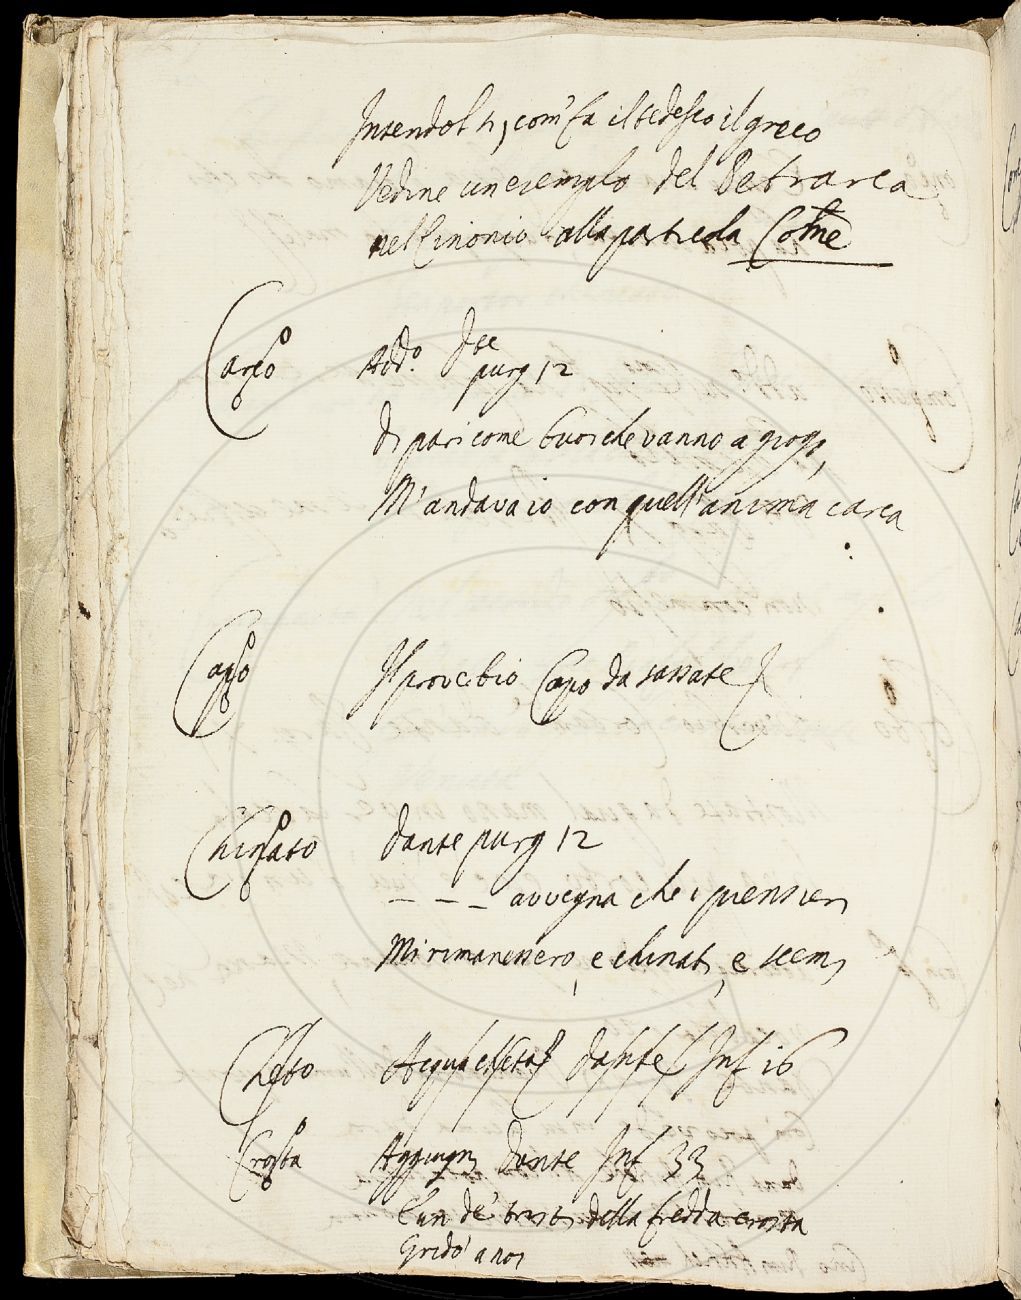 Intendolti, com' fa il tedesco il greco
Vedine un'esemplo del Petrarca
nel Cinonio alla particola Come
Carco Add.º Dte
purg 12
Di pari come buoi che vanno a giogo,
M'andava io con quell'anima carca
Capo Il proverbio Capo da sassate
Chinato Dante purg 12
– – – avvegna che i pensieri
Mi rimanessero, e chinati, e scemi
Cheto Acqua cheta Dante Inf 16
Crosta Aggiugni Dante Inf 33
E un de' tristi della fredda crosta
Gridò a noi